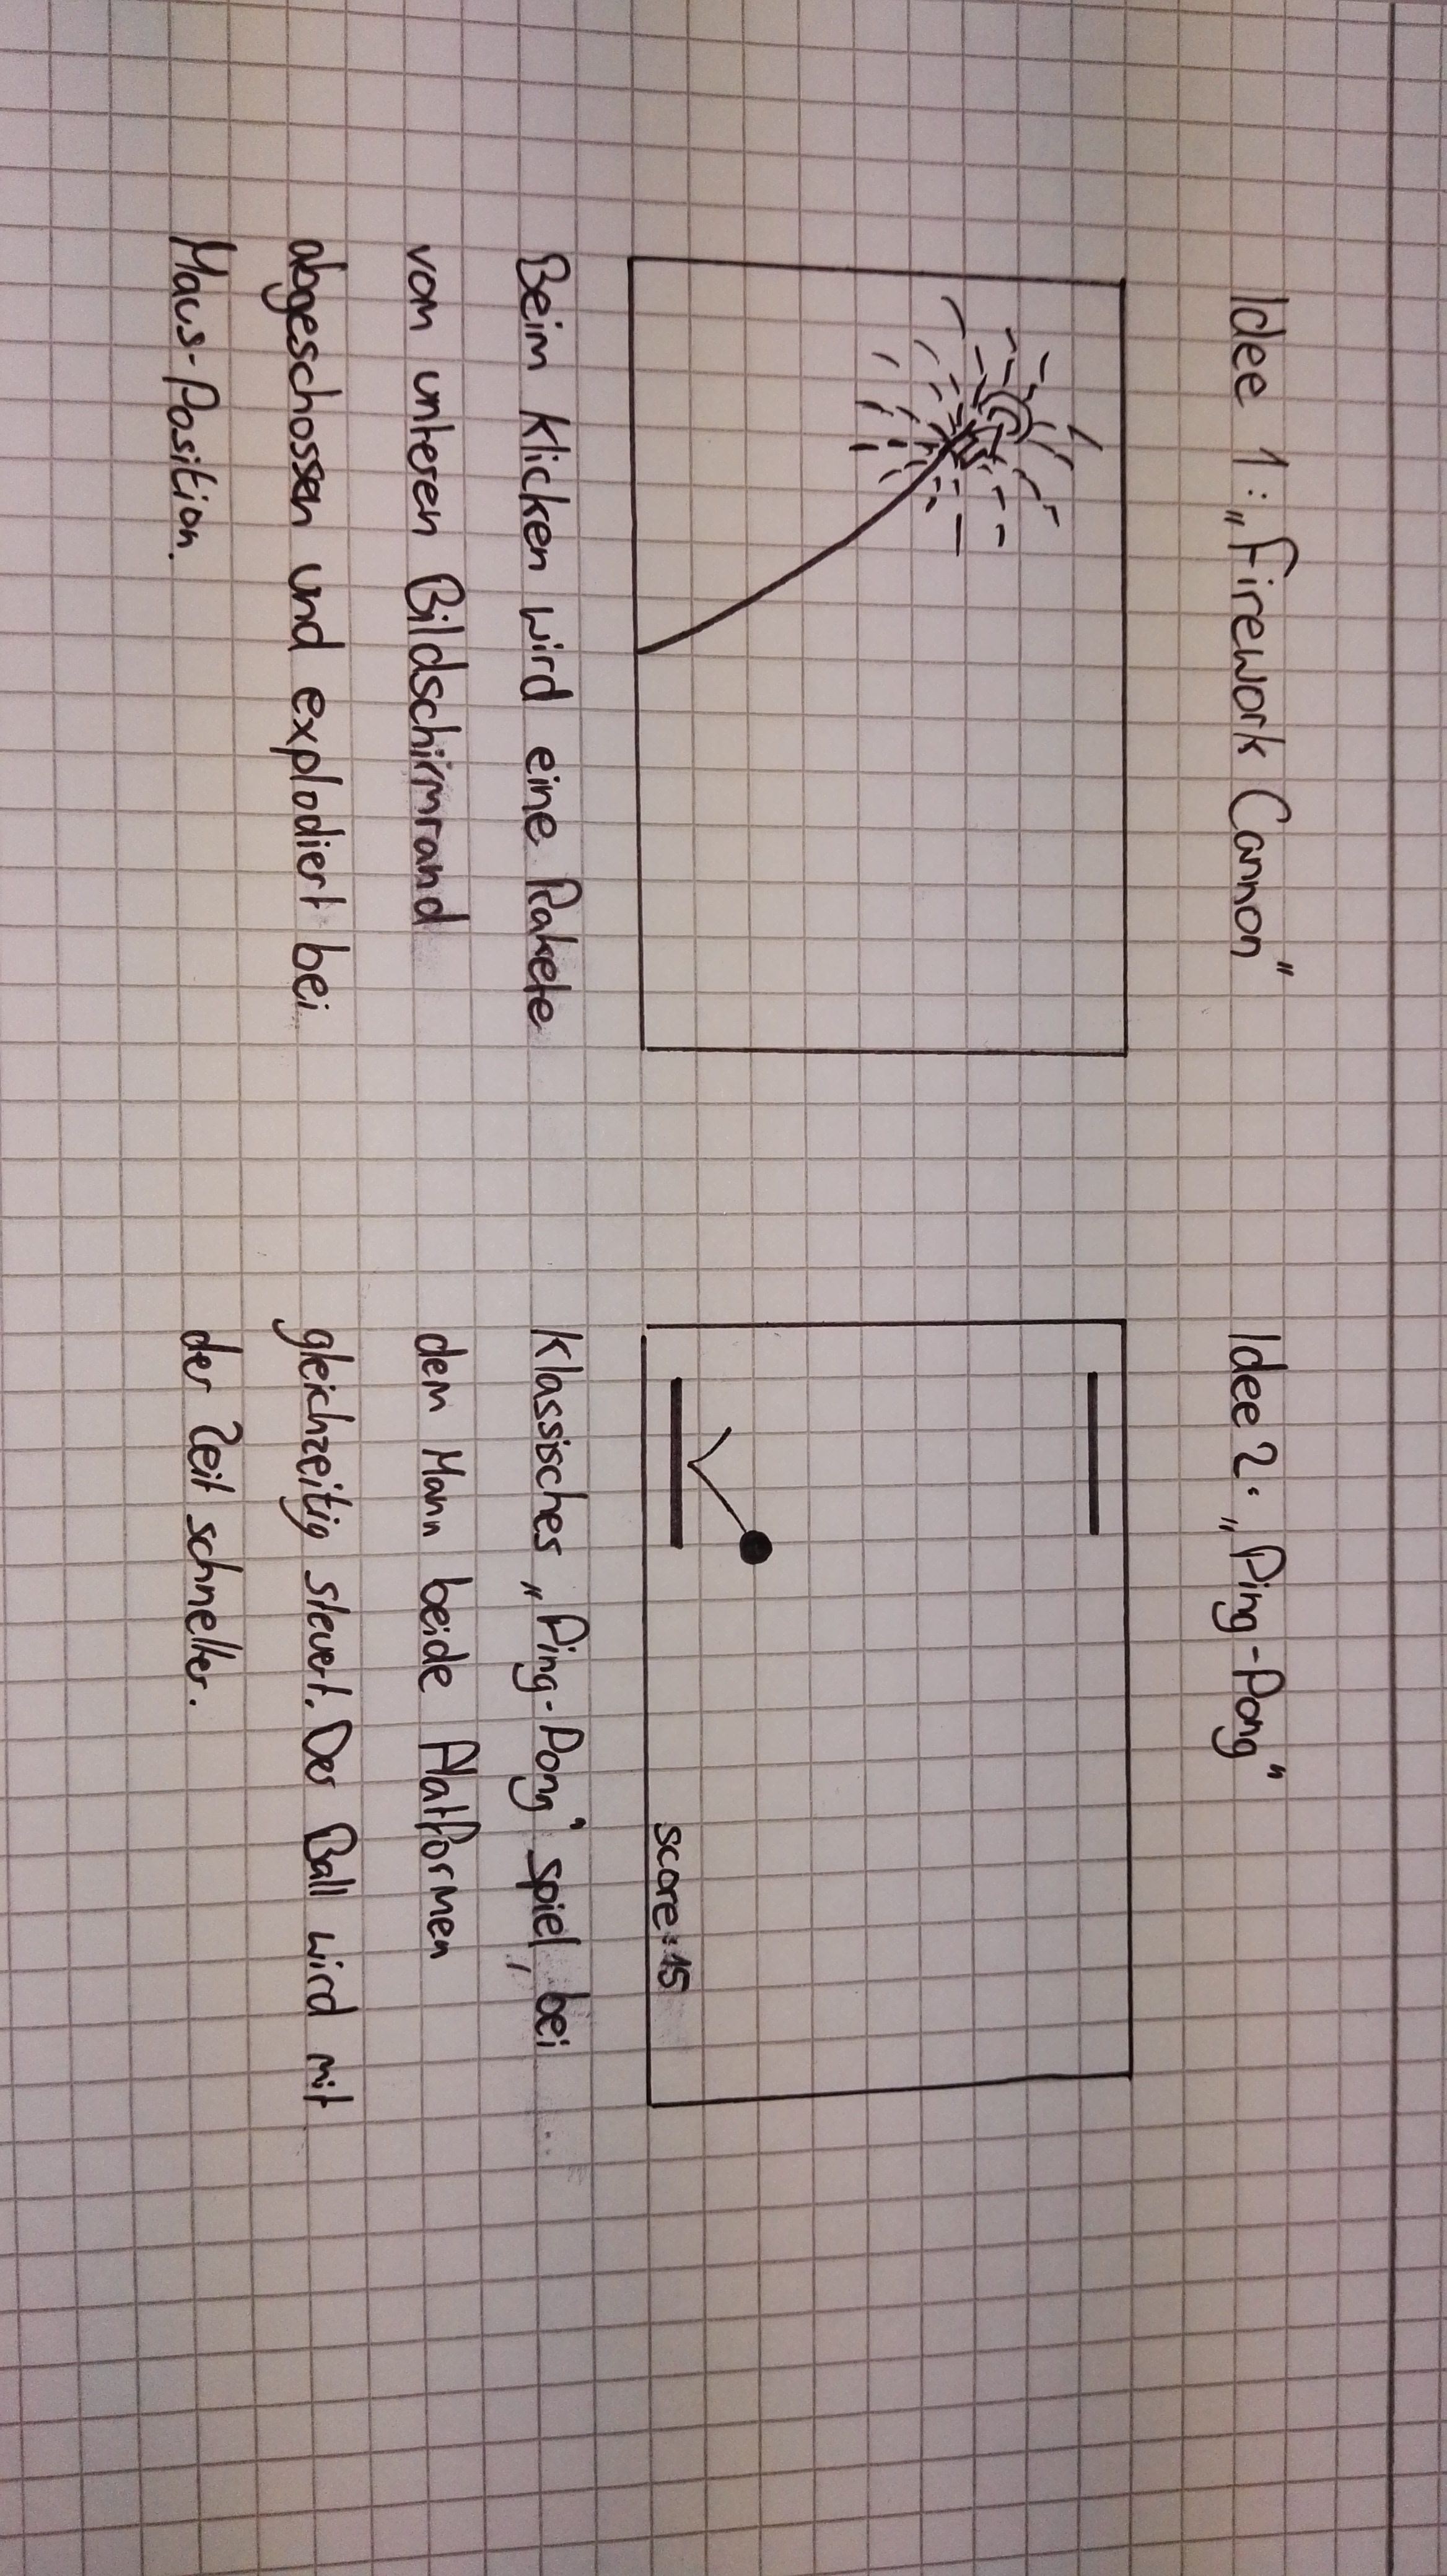 Idee 1: „Firework Cannon"
Beim Klicken wird eine Rakete
vom unteren Bildschirmrand
abgeschossen und explodiert bei
Maus-Position.
Idee 2: „Ping-Pong"
score: 15
Klassisches „Ping-Pong" spiel, bei
dem Mann beide Platformen
gleichzeitig steuert. Der Ball wird mit
der Zeit schneller.